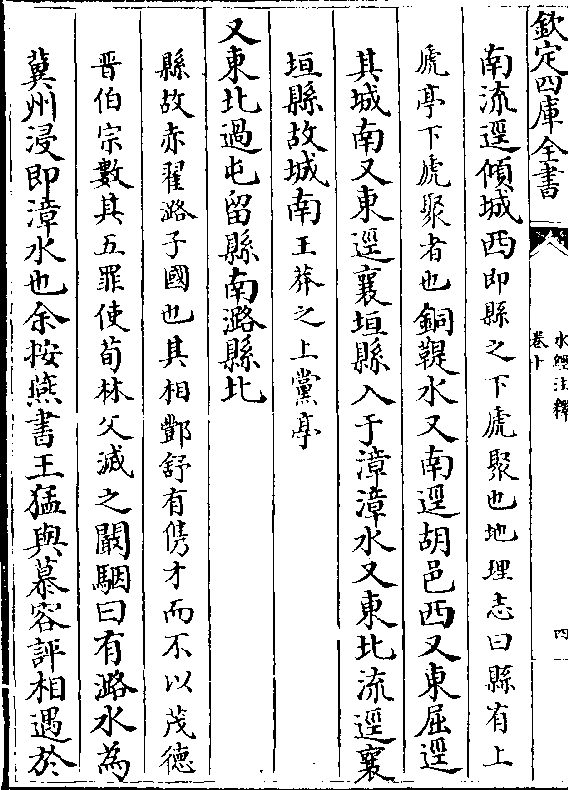 欽定四庫全書
水經注釋
卷十
四
南流逕傾城西即縣之下虒聚也地理志曰縣有上
虒亭下虒聚者也銅鞮水又南逕胡邑西又東屈逕
其城南又東逕襄垣縣入于漳漳水又東北流逕襄
垣縣故城南王莽之上黨亭
又東北過屯留縣南潞縣北
縣故赤翟潞子國也其相酆舒有儁才而不以茂德
晉伯宗數其五罪使荀林父滅之闞駰曰有潞水為
冀州浸即漳水也余按燕書王猛與慕容評相遇於